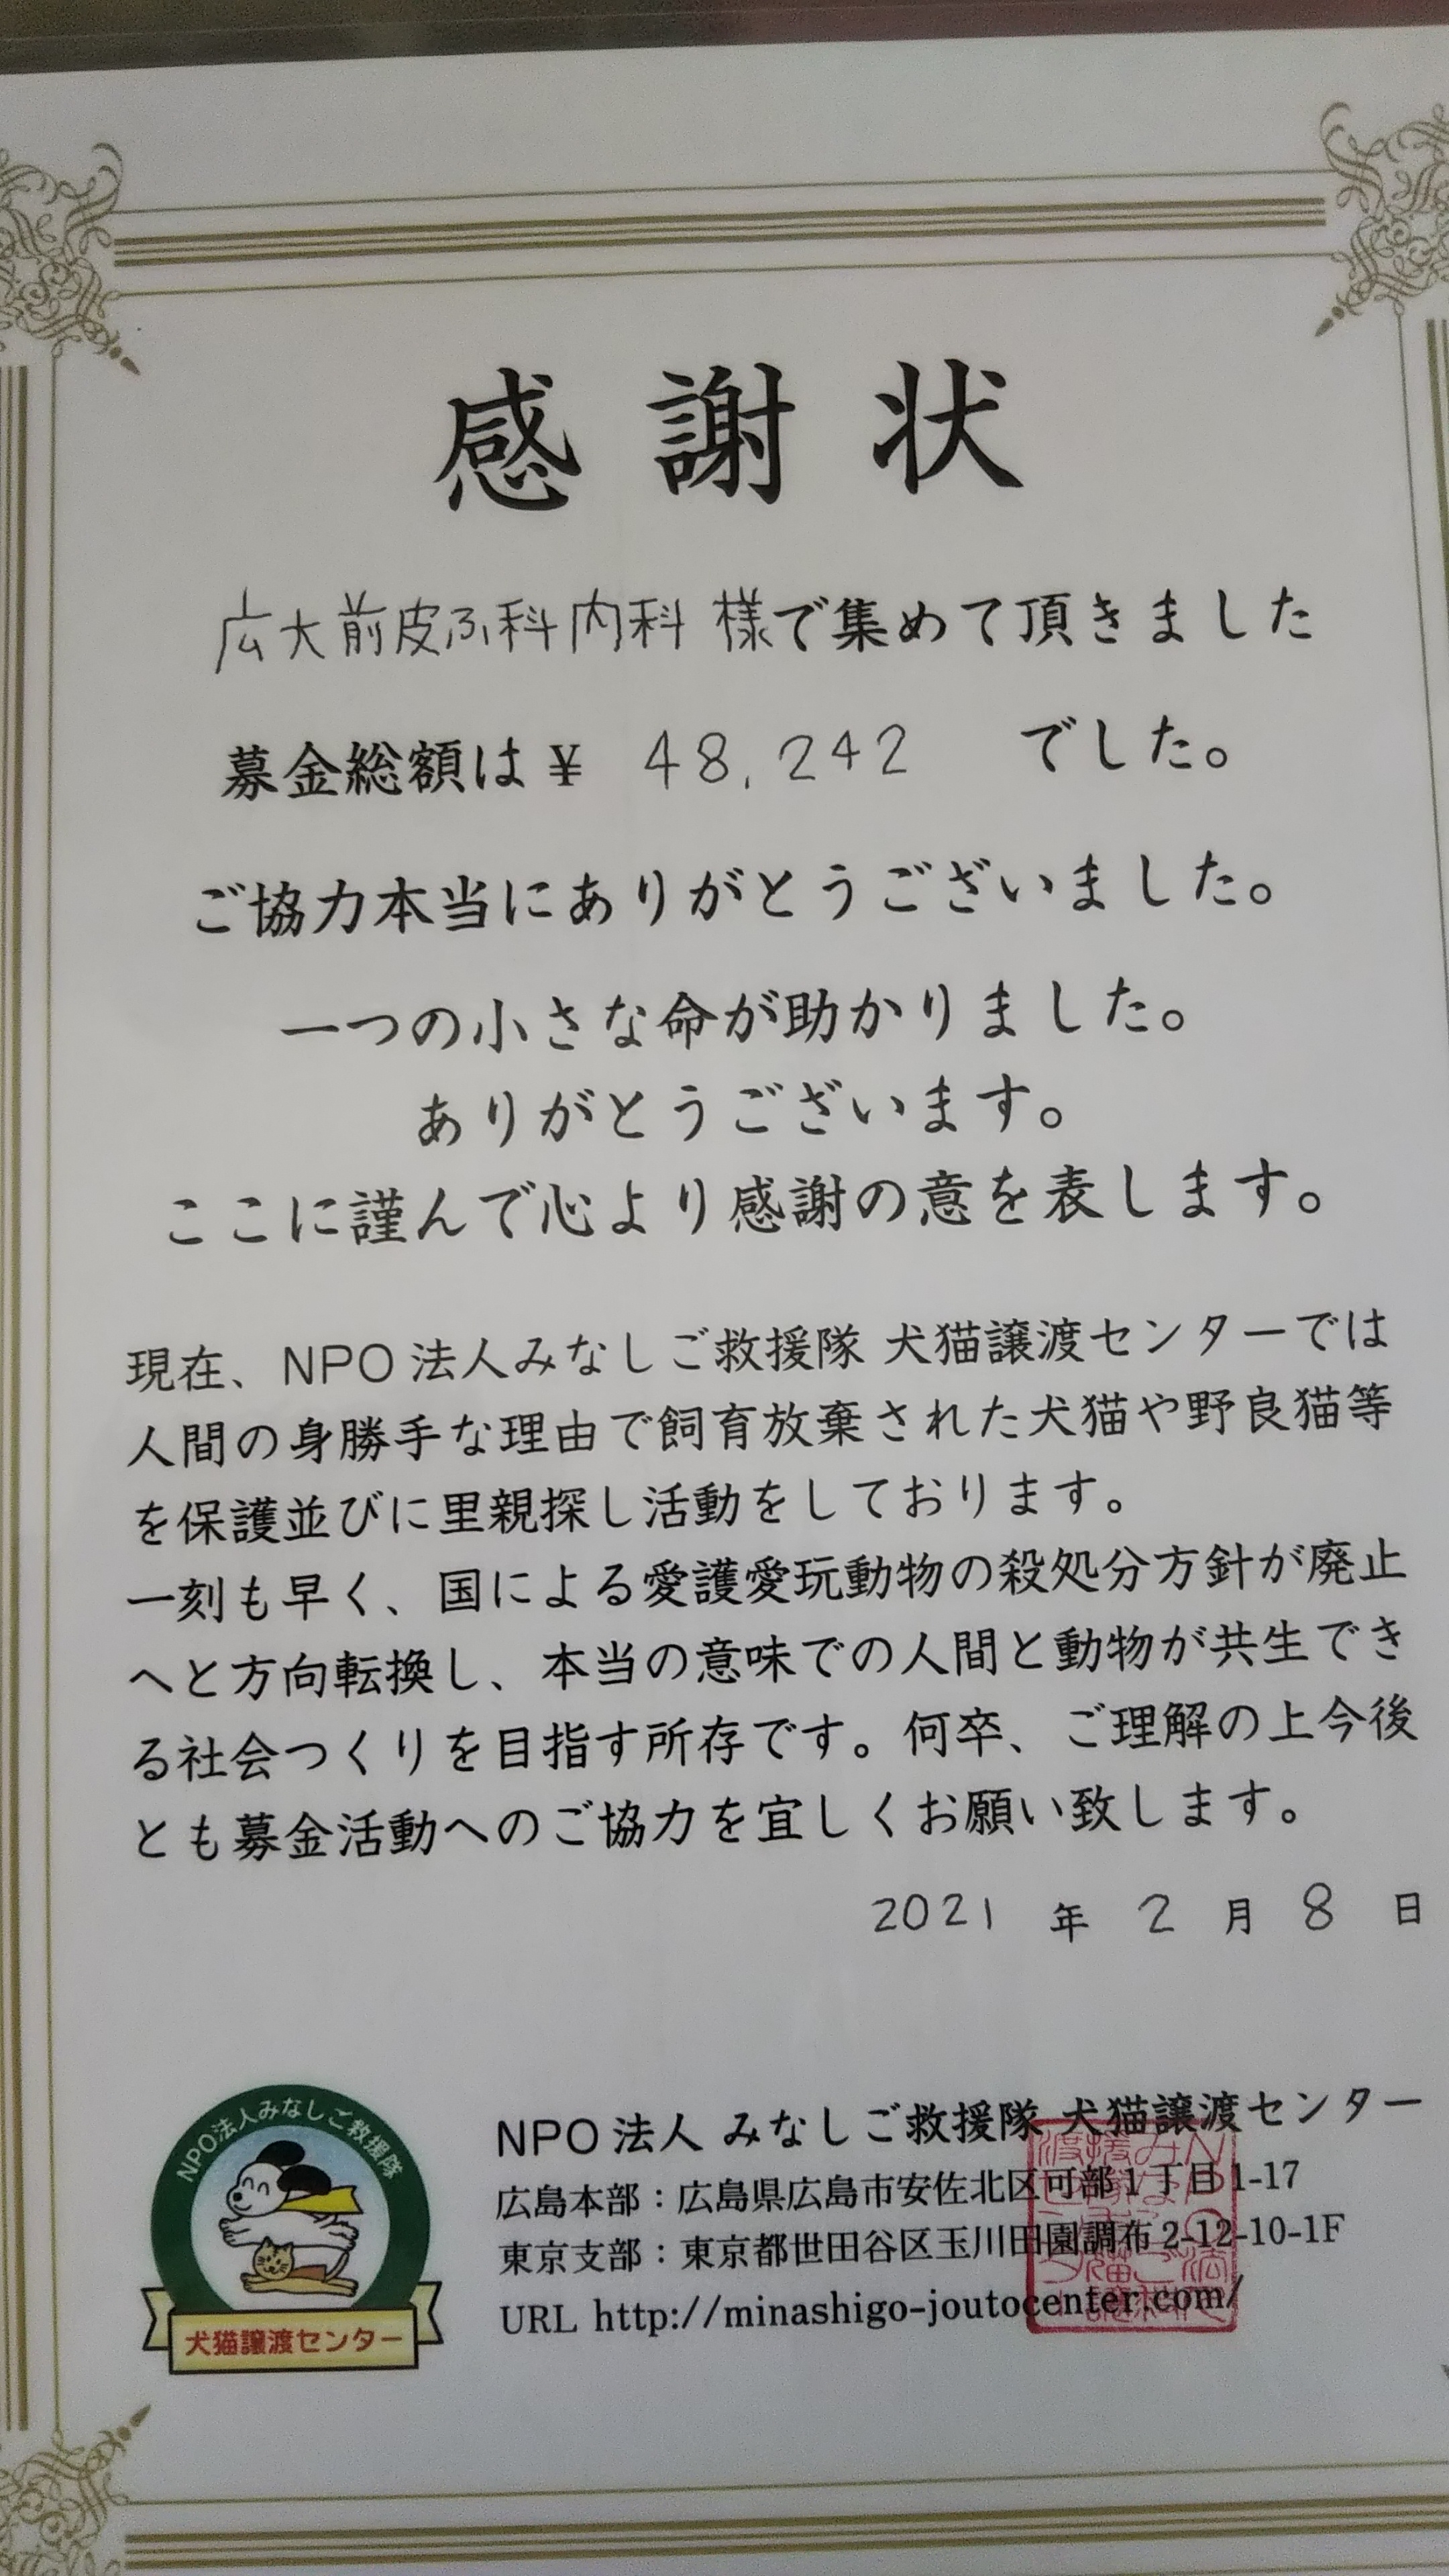 感謝状
広大前皮ふ科内科 様で集めて頂きました
募金総額は¥ 48,242 でした。
ご協力本当にありがとうございました。
一つの小さな命が助かりました。
ありがとうございます。
ここに謹んで心より感謝の意を表します。
現在、NPO法人みなしご救援隊 犬猫譲渡センターでは
人間の身勝手な理由で飼育放棄された犬猫や野良猫等
を保護並びに里親探し活動をしております。
一刻も早く、国による愛護愛玩動物の殺処分方針が廃止
へと方向転換し、本当の意味での人間と動物が共生でき
る社会つくりを目指す所存です。何卒、ご理解の上今後
とも募金活動へのご協力を宜しくお願い致します。
2021 年 2 月 8 日
NPO法人みなしご救援隊
犬猫譲渡センター
NPO法人 みなしご救援隊 犬猫譲渡センター
広島本部：広島県広島市安佐北区可部1丁目1-17
東京支部：東京都世田谷区玉川田園調布2-12-10-1F
URL http://minashigo-joutocenter.com/